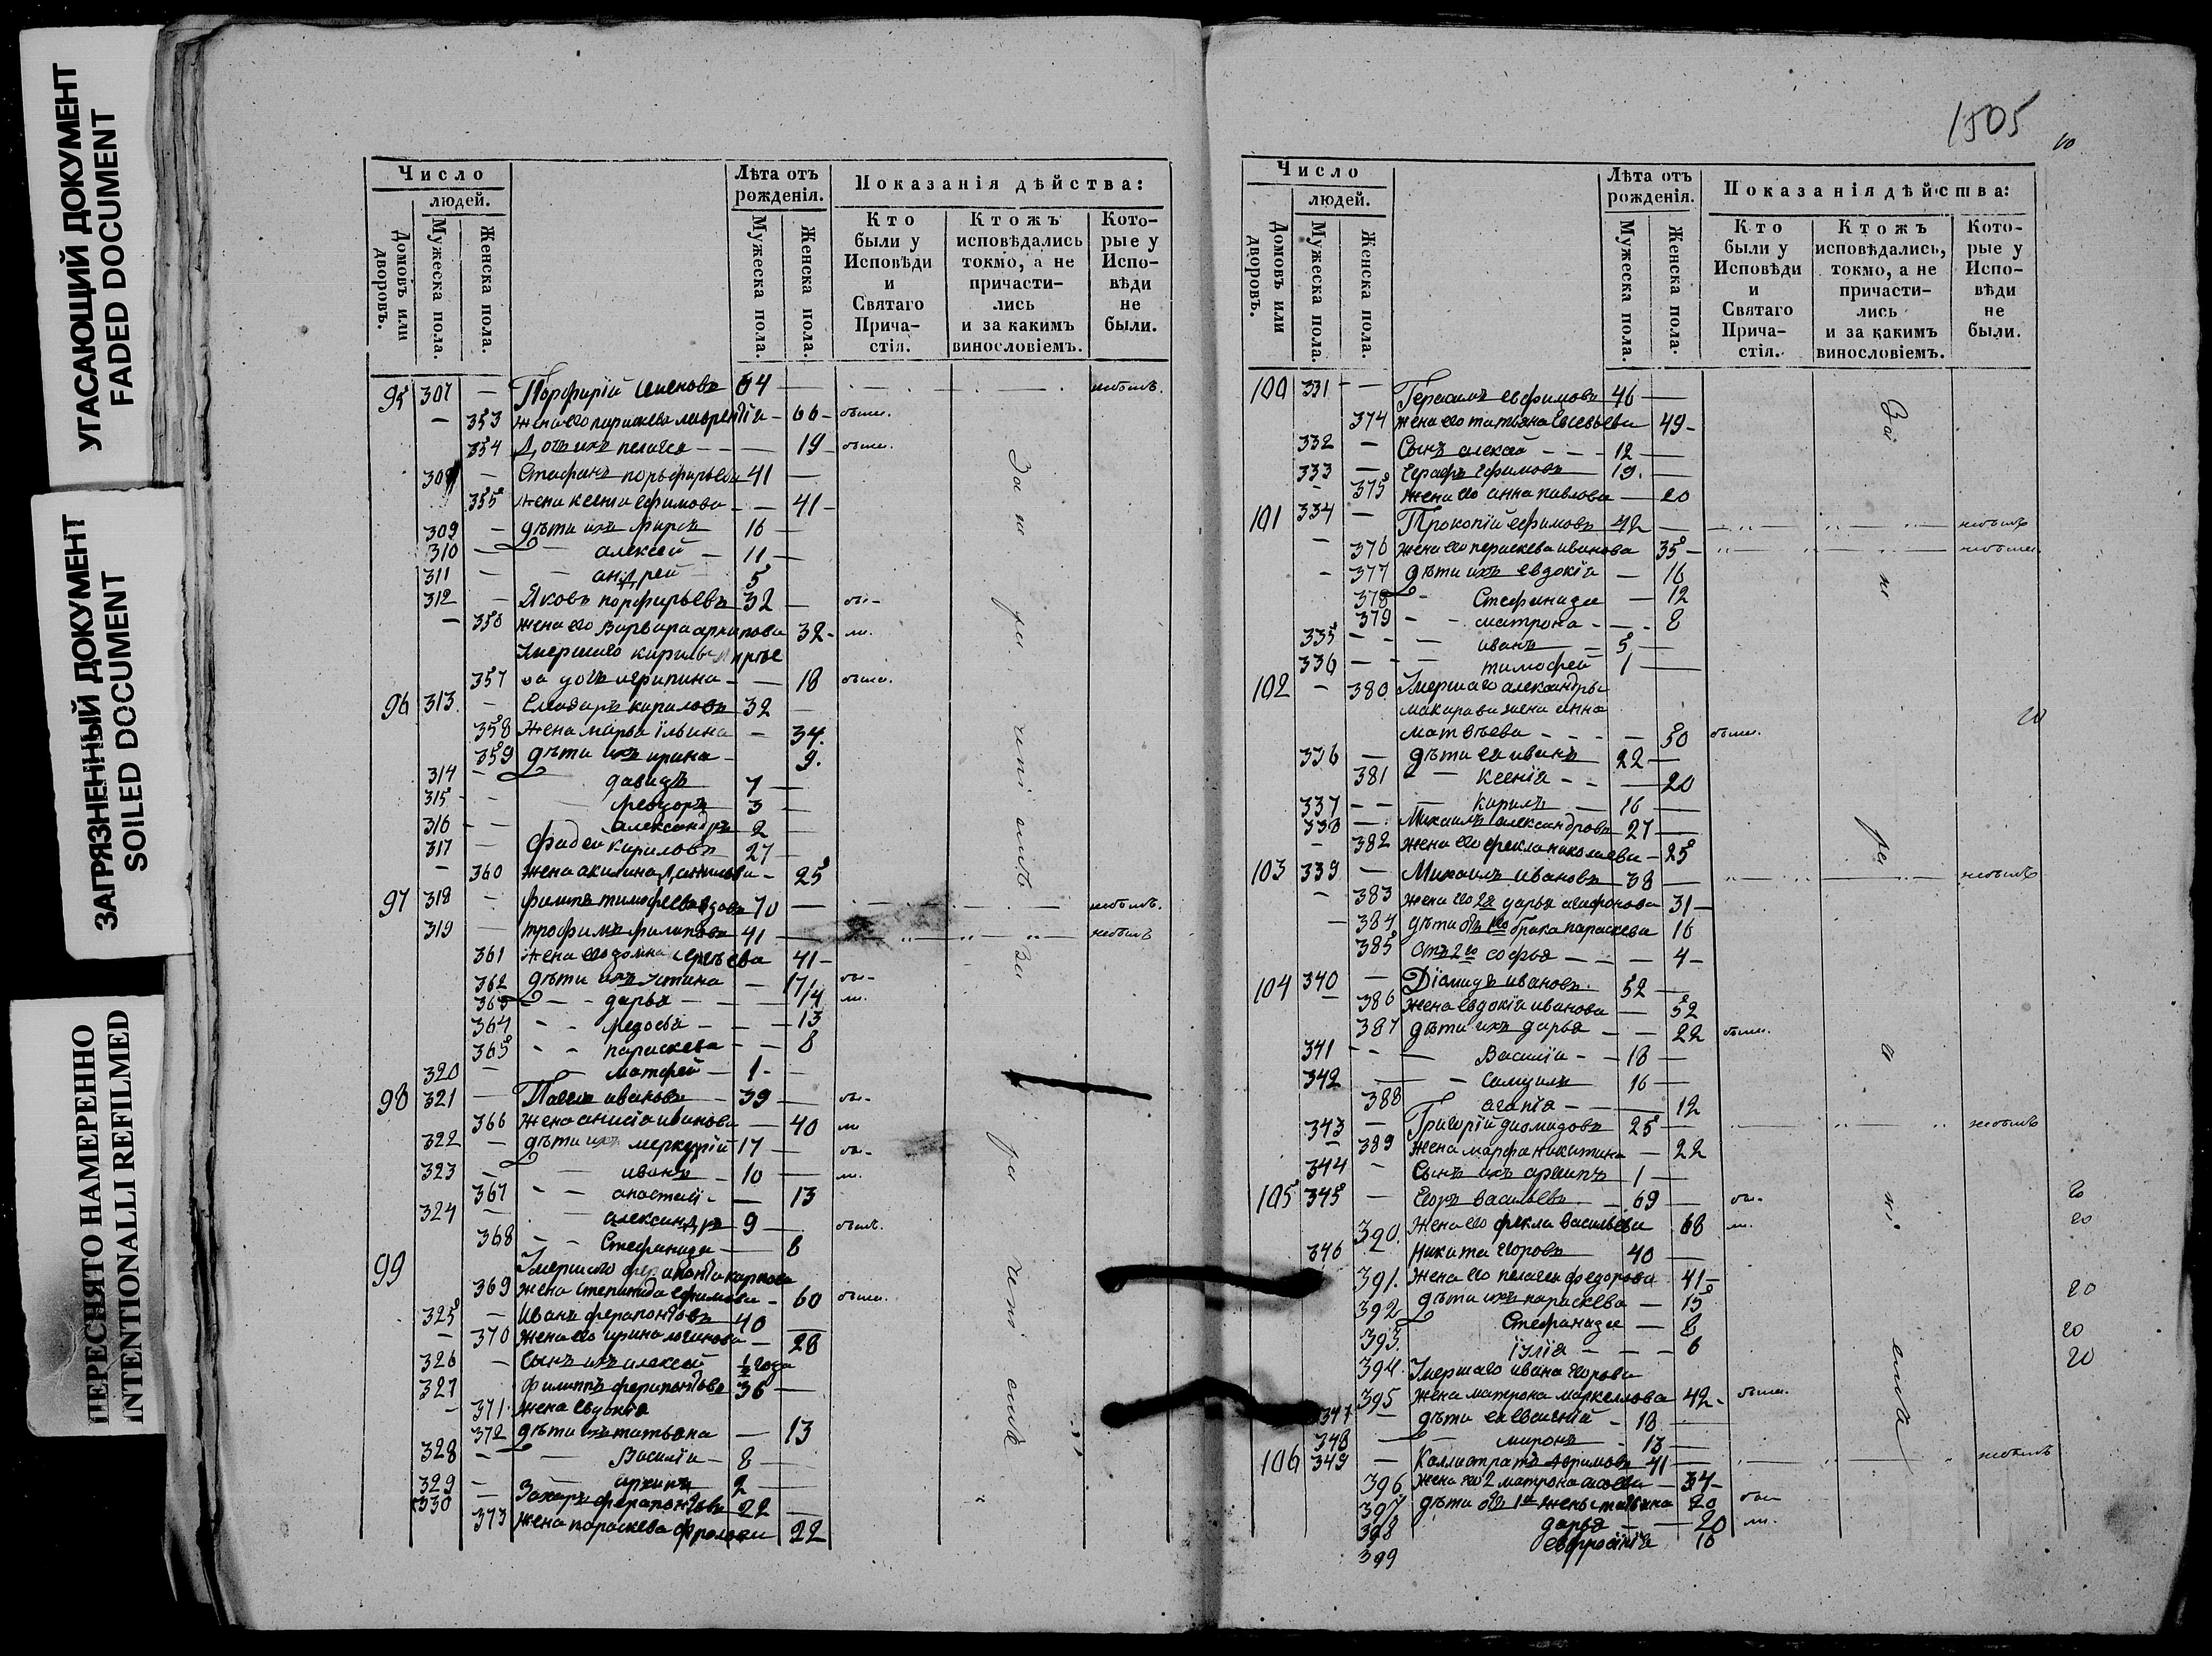 УГАСАЮЩИЙ ДОКУМЕНТ
FADED DOCUMENT
ЗАГРЯЗНЕННЫЙ ДОКУМЕНТ
SOILED DOCUMENT
ПЕРЕСНЯТО НАМЕРЕННО
INTENTIONALLI REFILMED
Число
людей.
Домовъ или дворовъ.
Мужеска пола.
Женска пола.
Лѣта отъ рожденія.
Мужеска пола.
Женска пола.
Показанія дѣйства:
Кто были у Исповѣди и Святаго Прича-стія.
Ктожъ исповѣдались токмо, а не причасти-лись и за какимъ винословіемъ.
Кото-рые у Испо-вѣди не были.
95 307 — Порфирій Семеновъ 64 — небылъ.
— 353 жена его параскева лаврентіа — 66 — была.
354 Дочь ихъ пелагея — 19 — была.
308 — Стефанъ порфирьевъ 41 —
355 жена ксенія ефимова — 41 —
309 — дѣти ихъ 16 —
310 — алексей — 11 —
311 — андрей 5
312 — Яковъ порфирьевъ 32 — бы-
— 356 жена его Варвара архипова 32 — ли.
Умершаго кирилы
357 дочь агрипина — 18 была.
96 313 — кириловъ 32 —
358 Жена марья ільина — 34.
359 дѣти ихъ ирина — 9.
314 — давидъ 7 —
315 — 3 —
316 — александръ 2 —
317 — Фадей кириловъ 27 —
— 360 жена акилина — 25
97 318 — тимофеевъ вдовъ 70 — небылъ.
319 — трофимъ филиповъ 41 — небылъ
361 Жена его домна сергѣева 41 —
362 дѣти ихъ устина — 17 бы-
363 — дарья — 14 ли.
364 — федосья — 13
365 — параскева — 8
320 — матфей — 1 —
98 321 — ивановъ 39 — бы-
366 жена анисіа иванова — 40 ли
322 — дѣти ихъ меркурій 17 — бы-
323 — иванъ — 10 — ли.
367 — анастасіа — 13
324 — александръ 9 — былъ.
368 — Стефанида — 8
99 Умершаго ферапонта карпова
369 жена степанида ефимова — 60 была.
325 — Иванъ ферапонтовъ 40
— 370 Жена его ирина логинова — 28
326 — Сынъ ихъ алексей ½ года
327 Филиппъ ферапонтовъ 36 —
— 371 жена евдокія
372 дѣти ихъ татьяна — 13
328 — Василіи — 8 —
329 — архипъ 2 —
330 — Захаръ ферапонтовъ 22 —
373 жена параскева фролова 22
1505
Число
людей.
Домовъ или дворовъ.
Мужеска пола.
Женска пола.
Лѣта отъ рожденія.
Мужеска пола.
Женска пола.
Показанія дѣйства:
Кто были у Исповѣди и Святаго Прича-стія.
Ктожъ исповѣдались, токмо, а не причасти-лись и за какимъ винословіемъ.
Кото-рые у Испо-вѣди не были.
100 331 — Герасимъ евфимовъ 46 —
374 жена его татьяна Евсевьева 49 —
332 — Сынъ алексей — 12 —
333 — Ефимовъ 19. —
— 375 жена его анна павлова — 20
101 334 — Прокопій ефимовъ 42 — небылъ
— 376 жена его параскева иванова 35 — небыла.
— 377 дѣти ихъ евдокіа — 16
378 — Стефанида — 12
379 — матрона — 8
335 — иванъ — 5 —
336 — тимофей 1 —
102 — 380 Умершаго александра
макарова жена анна
матвѣева — 50 была.
336 — дѣти ея иванъ 22 —
381 — ксеніа — 20
337 — кирилъ — 16 —
338 — Михаилъ александровъ 27 —
— 382 жена его фекла николаева — 25
103 339 — Михаилъ ивановъ 38 — небылъ
— 383 жена его 2я дарья агафонова 31 —
— 384 дѣти отъ 1го брака параскева 16
385 Отъ 2го софья — 4 —
104 340 — Діамидъ ивановъ. 52 —
— 386 жена евдокіа иванова — 52
387 дѣти ихъ дарья — 22 была.
341 — Василіи — 18 —
342 — Самуилъ 16 —
388 агапіа — 12
343 — Григорій диомидовъ 25 — небылъ
— 389 жена марфа никитина — 22
344 — Сынъ ихъ архипъ 1 —
105 345 — Егоръ васильевъ — 69 — бы-
390. жена его фекла васильева 68 ли.
346 Никита егоровъ 40 —
391. жена его пелагея федорова 41 —
392 дѣти ихъ параскева — 15
393. Стефанида — 8
394. іуліа — 6
Умершаго ивана егорова
395 жена матрона маркеллова 42 — была.
347 — дѣти ея евгеній — 18 —
348 — миронъ — 13 —
106 349 — Каллистратъ 41 — небылъ
396 жена его 2 матрона — 34 —
397 дѣти отъ 1й жены татьяна 20 бы-
398 дарья — 20 ли.
399 евфросиніа 16